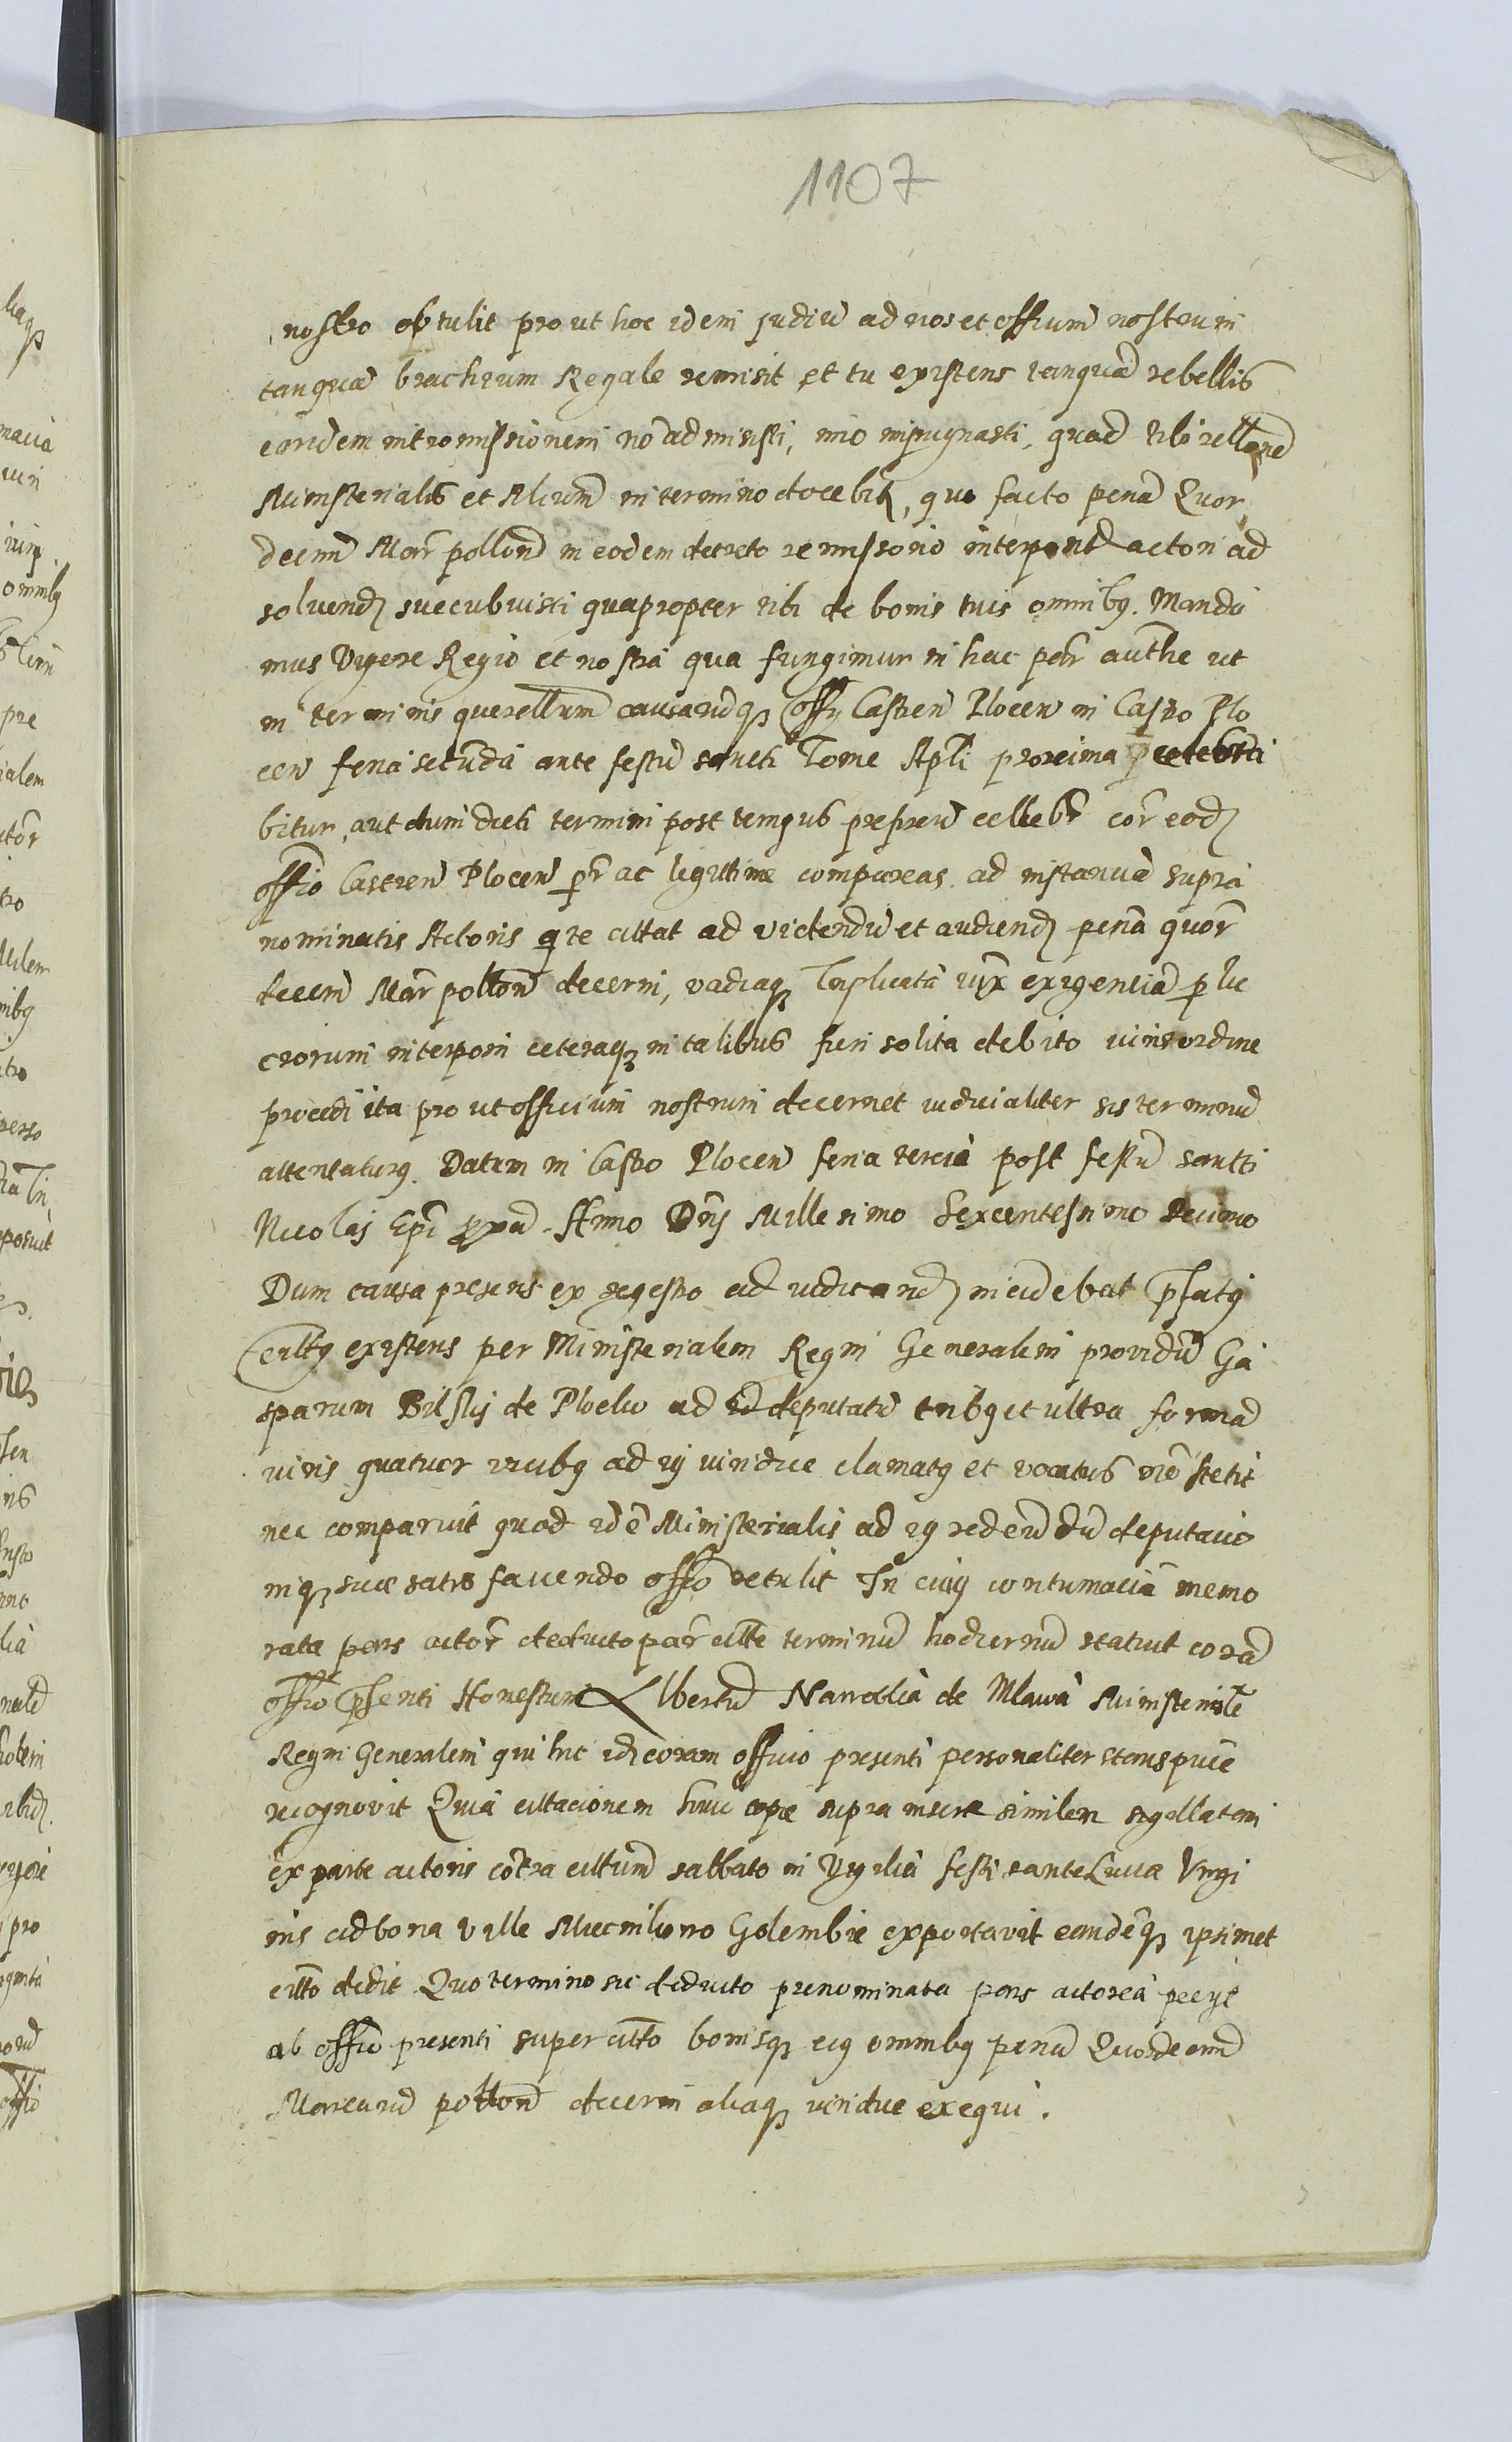 1107
nostro obtulit prout hoc idem judiu ad nos et offium nostrum
tanqua brachium Regale remisit et tu existens tanqua rebellis
eandem intromissionem no admisisti, imo impugnasti, quod tibi
Ministerialis et Alium in termino docebit, quo facto pena Quor
decim Mar pollon in eodem decreto remissorio interposit actori ad
soluend succubuisti quapropter tibi de bonis tuis omnibq. Manda
mus Vigore Regio et nostra qua fungimur in hac par authe ut
in terminis querellarum causarumq offy Castren Plocen in Castro Plo
cen feria secunda ante festu sancti Tome Apli proxima celebra
bitur, aut dum dicti termini post tempus presen cellebr cor eod
offio Castren Plocen pr ac legittime compareas ad instancia supra
nominatis Actoris q te citat ad videndu et audiend pena quor
decem Mar pollon decerni, vadiaq Triplicata iux exigentia p lu
crorum interponi ceteraq in talibus fieri solita debito iuris ordine
procedi ita prout officium nostrum decernet iudicialiter sis terminu
attentaturq. Datum in Castro Plocen feria tercia post festu sancti
Nicolai Epi proxa. Anno Dny Millesimo Sexcentesimo Decimo
Dum causa presens ex regestro ad iudicand incidebat psatq
citatq existens per Ministerialem Regni Generalem providu Ga
sparum Bilsky de Plocko ad id deputatu tribq et ultra forma
iuris quatuor vicibq ad iy iuridice clamatq et vocatus no stetit
nec comparuit quod ide Ministerialis ad iy redeundu deputacio
niq sue satis faciendo offo retulit In cuiq contumacia memo
rata pars actor deducto par citte terminu hodiernu statuit cora
offio psenti Honestum Albertu Narodka de Mlawa Ministeriale
Regni Generalem qui hic id coram officio presenti personaliter stans puce
recognovit Quia cittacionem huic copie supra inserte similem sigillatam
ex parte actoris cotra cittum sabbato in Vigilia festi sante Lucia Virgi
nis ad bona Ville Miecznikowo Golembie exportavit eandeq ipsimet
citto dedit. Quo termino sic deducto prenominata pars actorea peciyt
ab offio presenti super citto bonisq eiq omnibq penu Quordecim
Marcaru pollon decerni aliaq iuridice exequi.